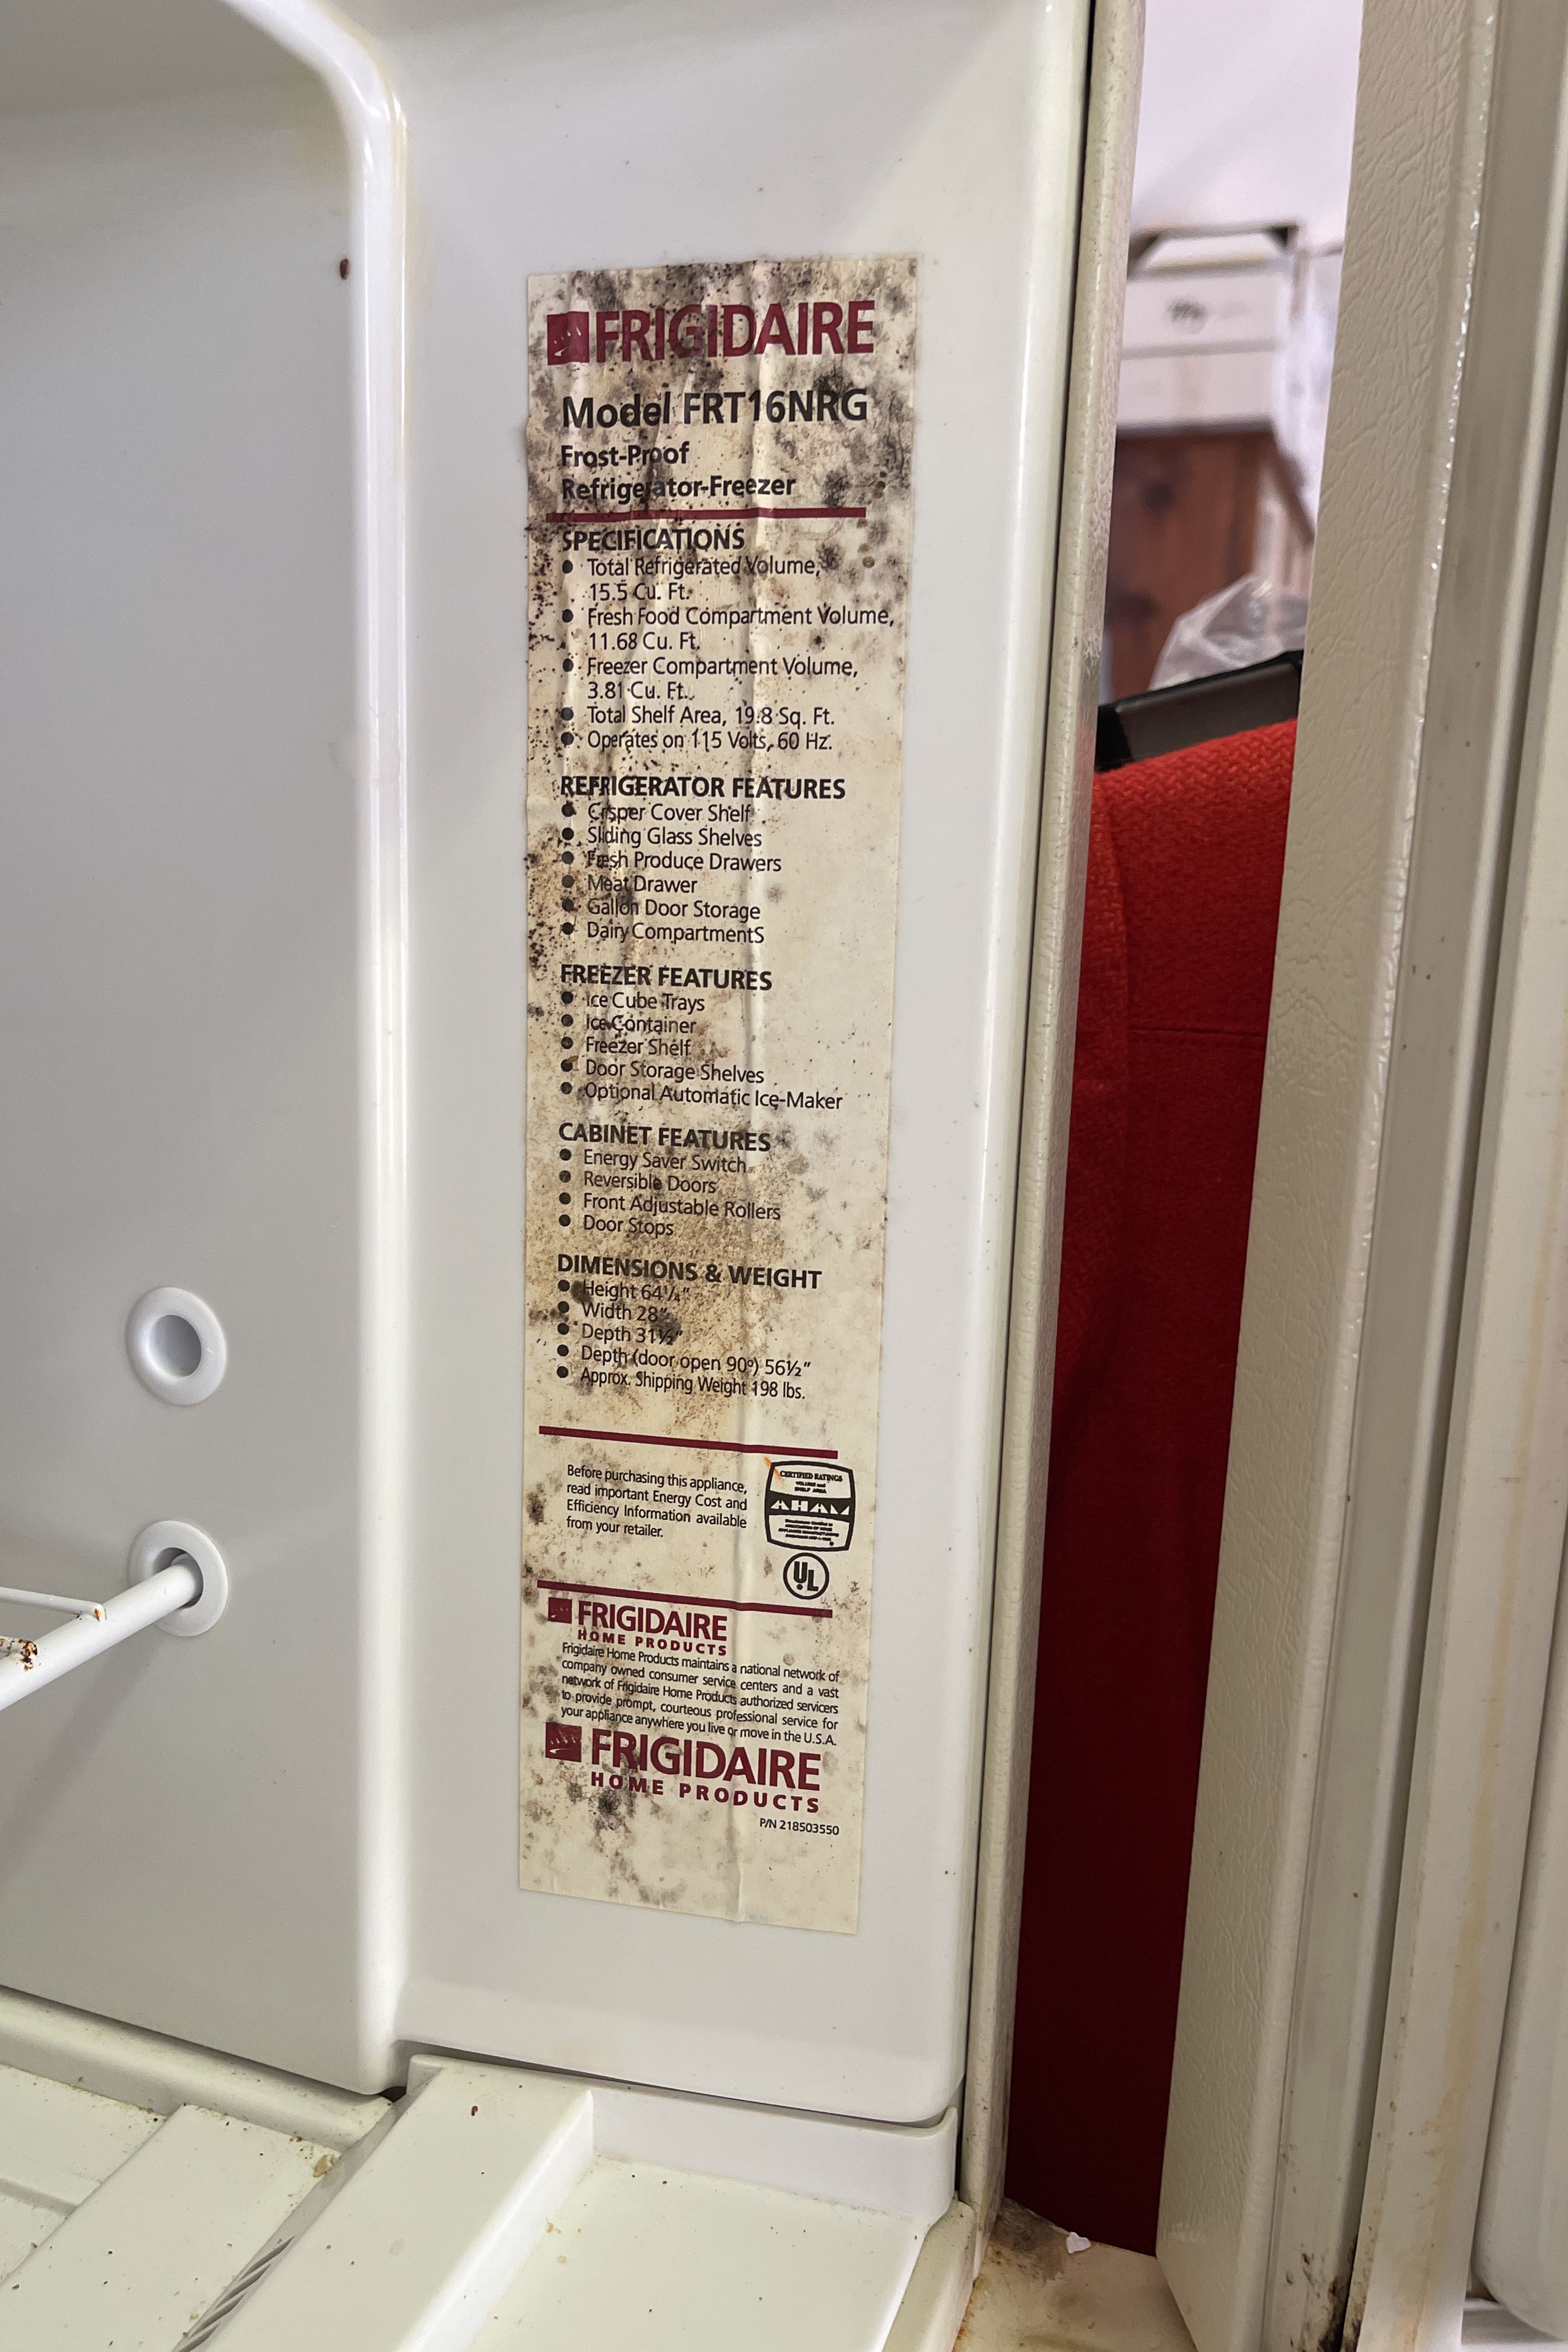 FRIGIDAIRE
Model FRT16NRG
Frost-Proof
Refrigerator-Freezer
SPECIFICATIONS
● Total Refrigerated Volume,
15.5 Cu. Ft.
● Fresh Food Compartment Volume,
11.68 Cu. Ft.
● Freezer Compartment Volume,
3.81 Cu. Ft.
● Total Shelf Area, 19.8 Sq. Ft.
● Operates on 115 Volts, 60 Hz.
REFRIGERATOR FEATURES
● Crisper Cover Shelf
● Sliding Glass Shelves
● Fresh Produce Drawers
● Meat Drawer
● Gallon Door Storage
● Dairy CompartmentS
FREEZER FEATURES
● Ice Cube Trays
● Ice Container
● Freezer Shelf
● Door Storage Shelves
● Optional Automatic Ice-Maker
CABINET FEATURES
● Energy Saver Switch
● Reversible Doors
● Front Adjustable Rollers
● Door Stops
DIMENSIONS & WEIGHT
● Height 64¼"
● Width 28"
● Depth 31½"
● Depth (door open 90º) 56½"
● Approx. Shipping Weight 198 lbs.
Before purchasing this appliance,
read important Energy Cost and
Efficiency Information available
from your retailer.
CERTIFIED RATINGS
VOLUME and
SHELF AREA
AHAM
UL
FRIGIDAIRE
HOME PRODUCTS
Frigidaire Home Products maintains a national network of
company owned consumer service centers and a vast
network of Frigidaire Home Products authorized servicers
to provide prompt, courteous professional service for
your appliance anywhere you live or move in the U.S.A.
FRIGIDAIRE
HOME PRODUCTS
P/N 218503550